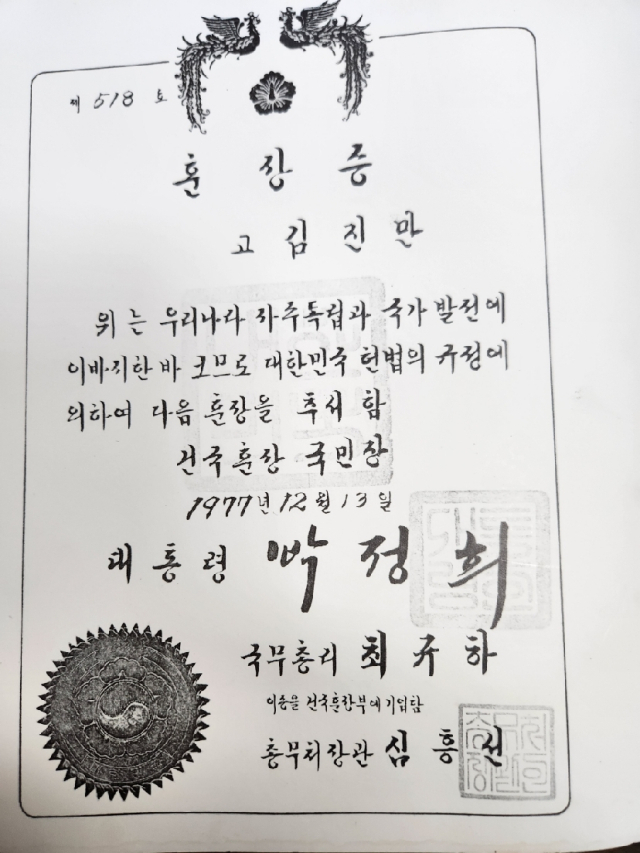 제 518 호
훈장증
고 김진만
위는 우리나라 자주독립과 국가 발전에
이바지한 바 크므로 대한민국 헌법의 규정에
의하여 다음 훈장을 추서 함
건국훈장 국민장
1977년 12월 13일
대통령 박정희
국무총리 최규하
이 증을 건국훈장부에 기입함
총무처장관 심흥선